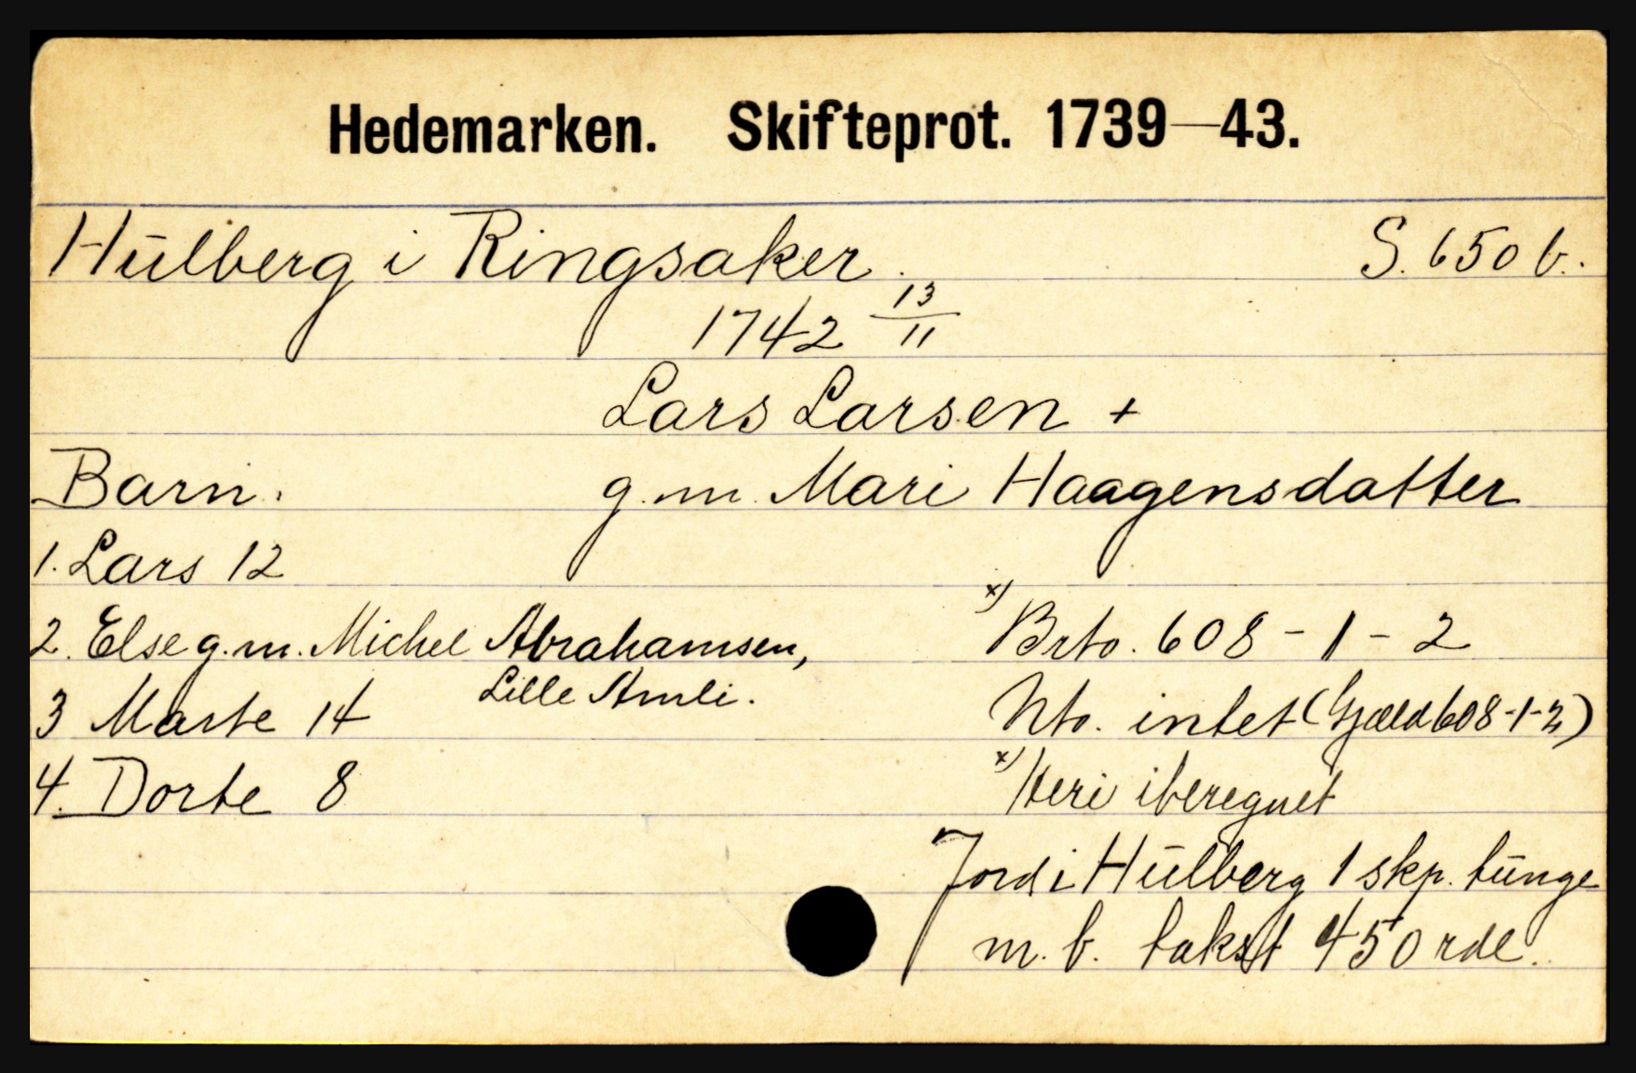 Hedemarken. Skifteprot. 1739—43.
Hulberg i Ringsaker. S. 650 b.
1742 13/11
Lars Larsen +
Barn. g.m. Mari Haagensdatter
1. Lars 12
2. Else g.m. Michel Abrahamsen,
Lille Amli.
3 Marte 14
4. Dorte 8
x) Brto. 608 - 1 - 2
Nto. intet (Gjæld 608-1-2)
x) Heri iberegnet
Jord i Hulberg 1 skp. tunge
m. b. takst 450 rdl.